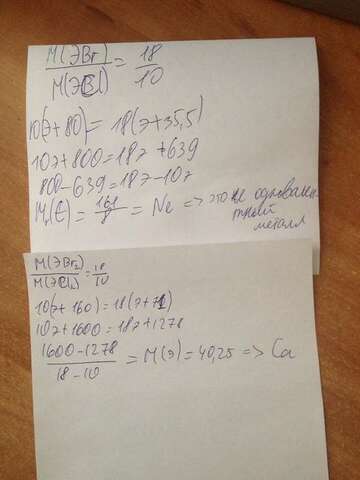 M(ЭBr)/M(ЭCl) = 18/10
10(э+80) = 18(э+35,5)
10э+800=18э+639
800-639=18э-10э
Mr(Э) = 161/8 = Ne => это не одновален-
тный
металл
M(ЭBr2)/M(ЭCl2) = 18/10
10(э+160)=18(э+71)
10э+1600=18э+1278
1600-1278/18-10 = M(э)=40,25 => Ca